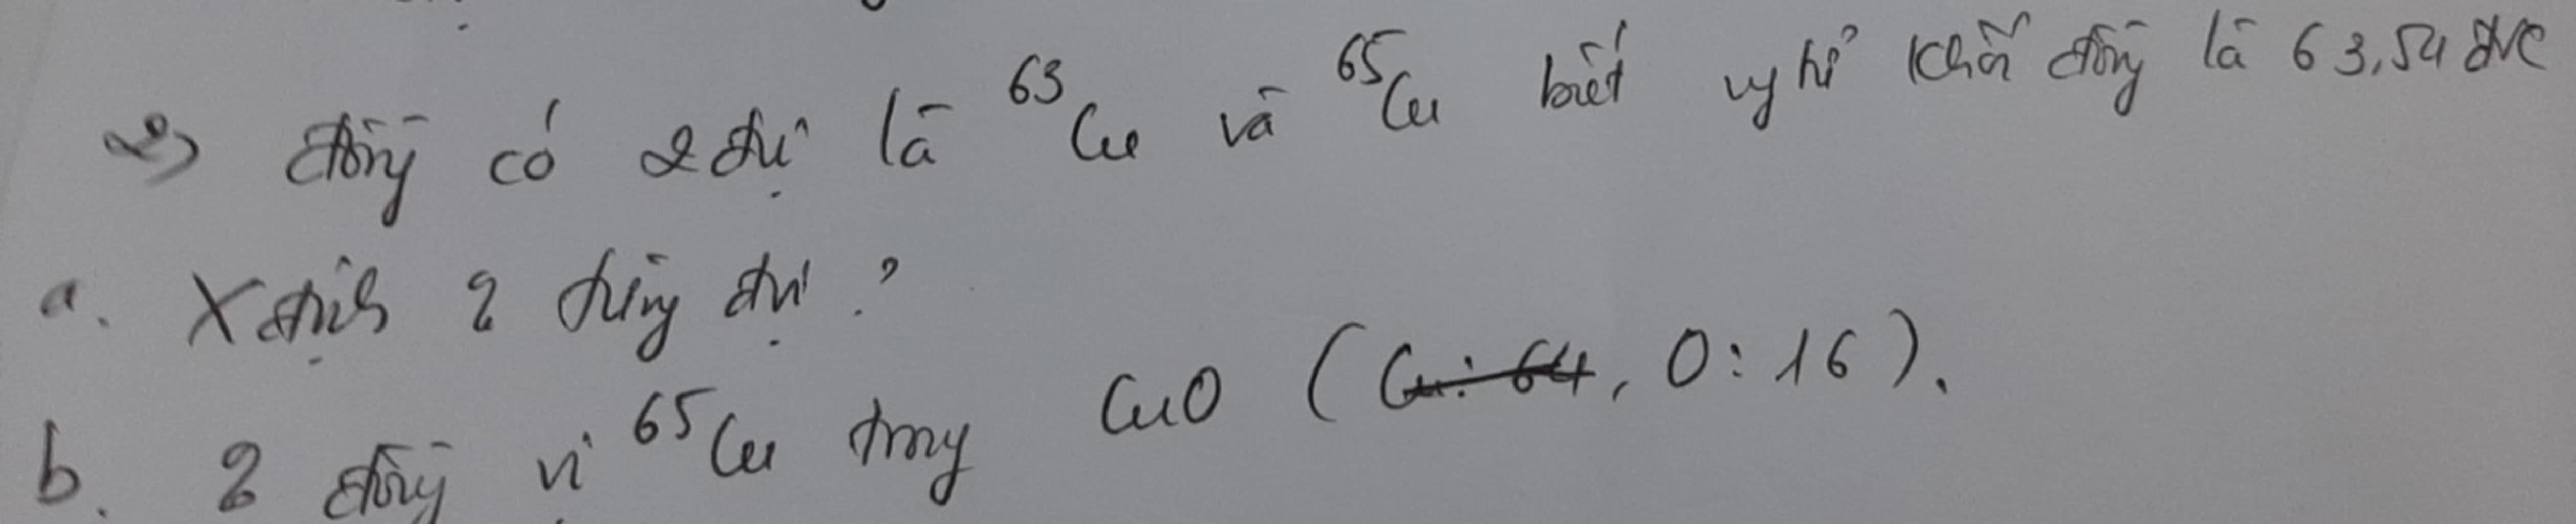 2) đồng có 2 đvị là ⁶³Cu và ⁶⁵Cu biết ngtử khối đồng là 63,54 đvC
a. Xđịnh % từng đvị ?
b. % đồng vị ⁶⁵Cu trong CuO (Cu: 64, O: 16).